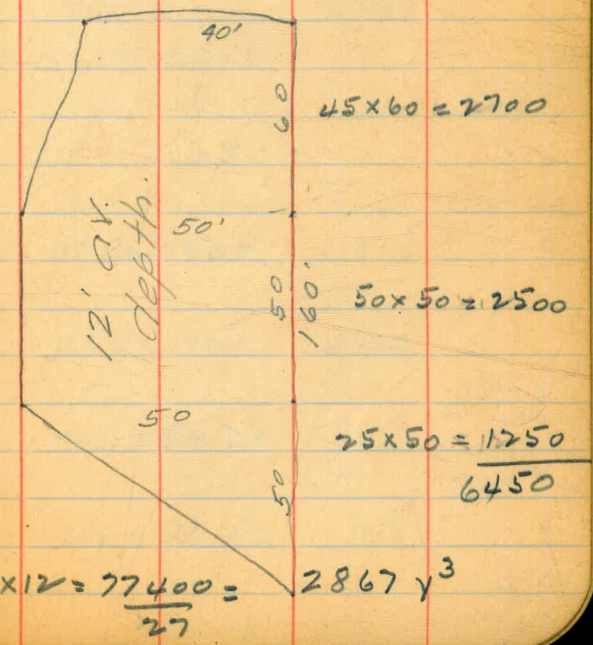 40'
60
45 x 60 = 2700
12' av. depth.
50'
50
160'
50 x 50 = 2500
50
25 x 50 = 1250
6450
50
x 12 = 77400 = 2867 y³
27